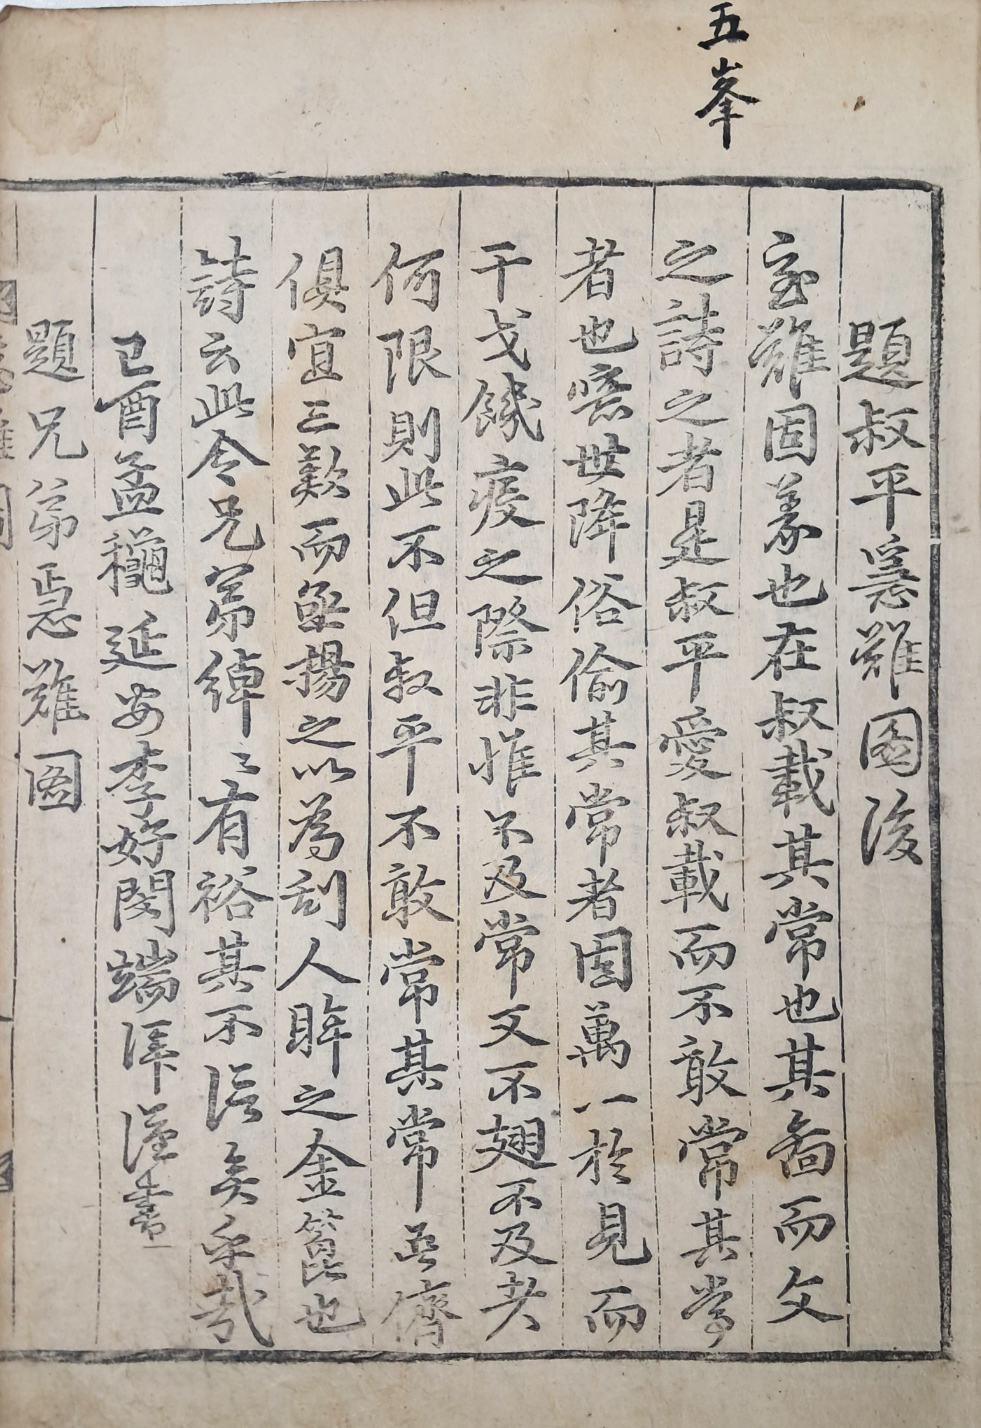 五峯
題叔平急難圖後
急難固義也在叔載其常也其啚而文
之詩之者是叔平愛叔載而不敢常其常
者也噫世降俗偷其常者固萬一於見而
干戈饑疫之際非惟不及常又不翅不及者
何限則此不但叔平不敢常其常吾儕
俱宜三歎而亟揚之以為刮人眸之金篦也
詩云此令兄弟綽〻有裕其不信矣乎哉
己酉孟穐延安李好閔端拜謹書
題兄弟急難圖